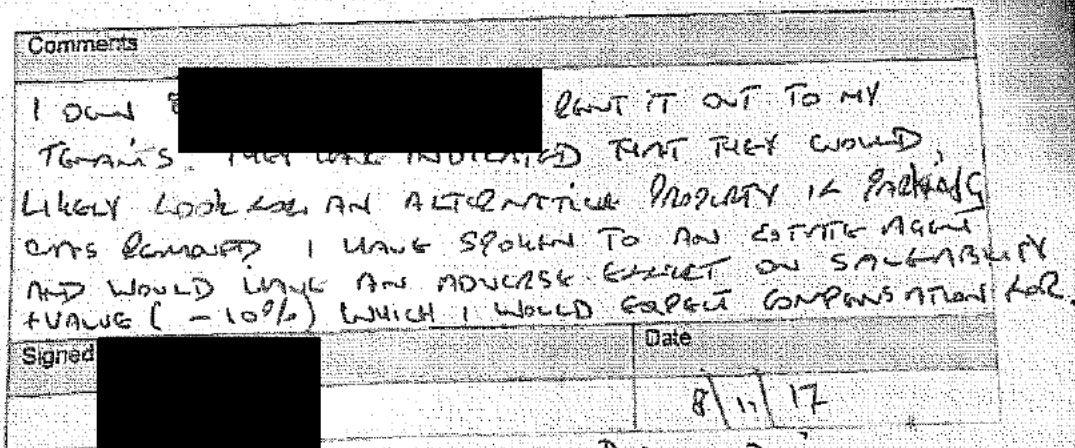 Comments
I OWN RENT IT OUT TO MY
TENANTS. THEY HAVE INDICATED THAT THEY WOULD
LIKELY LOOK FOR AN ALTERNATIVE PROPERTY IF PARKING
WAS REMOVED I HAVE SPOKEN TO AN ESTATE AGENT
AND WOULD HAVE AN ADVERSE EFFECT ON SALEABILITY
+VALUE ( -10%) WHICH I WOULD EXPECT COMPENSATION FOR.
Signed
Date
8/11/17